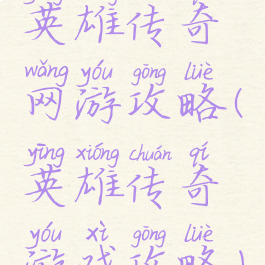 英雄传奇
wǎng yóu gōng lüè
网游攻略(
yīng xióng chuán qí
英雄传奇
yóu xì gōng lüè
游戏攻略)